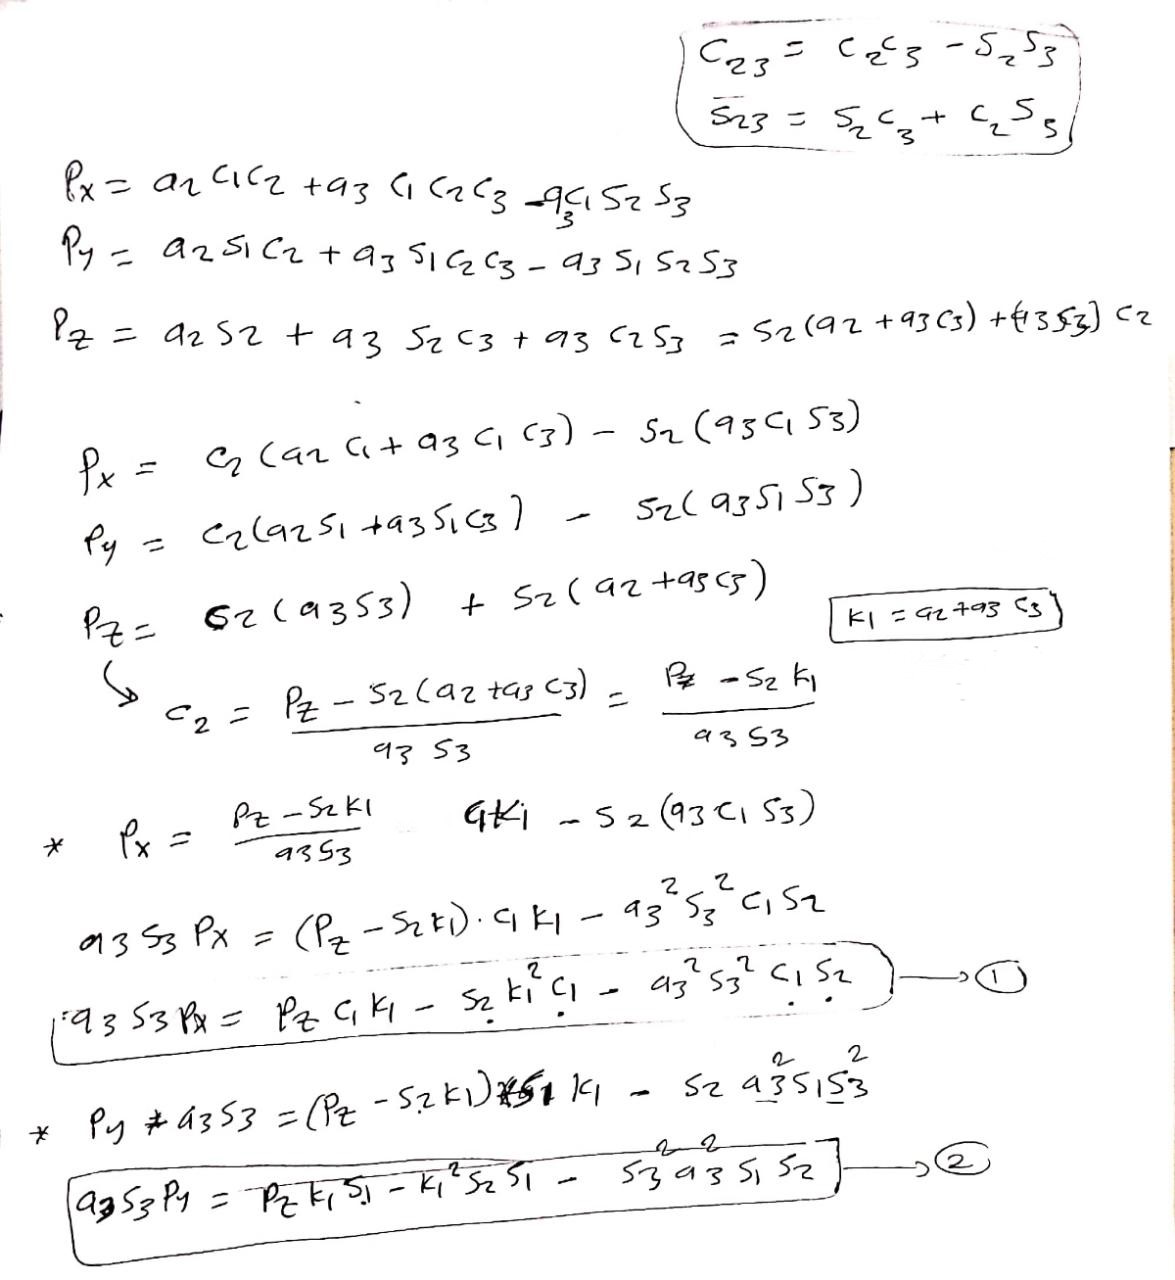 C₂₃ = C₂C₃ - S₂S₃
S₂₃ = S₂C₃ + C₂S₃
Px = a₂C₁C₂ + a₃C₁C₂C₃ - a₃C₁S₂S₃
Py = a₂S₁C₂ + a₃S₁C₂C₃ - a₃S₁S₂S₃
Pz = a₂S₂ + a₃S₂C₃ + a₃C₂S₃ = S₂(a₂ + a₃C₃) + (a₃S₃)C₂
Px = C₂(a₂C₁ + a₃C₁C₃) - S₂(a₃C₁S₃)
Py = C₂(a₂S₁ + a₃S₁C₃) - S₂(a₃S₁S₃)
Pz = C₂(a₃S₃) + S₂(a₂ + a₃C₃)
K₁ = a₂ + a₃C₃
↳ C₂ = (Pz - S₂(a₂ + a₃C₃)) / (a₃S₃) = (Pz - S₂K₁) / (a₃S₃)
* Px = (Pz - S₂K₁) / (a₃S₃) C₁K₁ - S₂(a₃C₁S₃)
a₃S₃Px = (Pz - S₂K₁)·C₁K₁ - a₃²S₃²C₁S₂
a₃S₃Px = PzC₁K₁ - S₂K₁²C₁ - a₃²S₃²C₁S₂ → ①
* Py * a₃S₃ = (Pz - S₂K₁)*S₁K₁ - S₂a₃²S₁S₃²
a₃S₃Py = PzK₁S₁ - K₁²S₂S₁ - S₃²a₃²S₁S₂ → ②